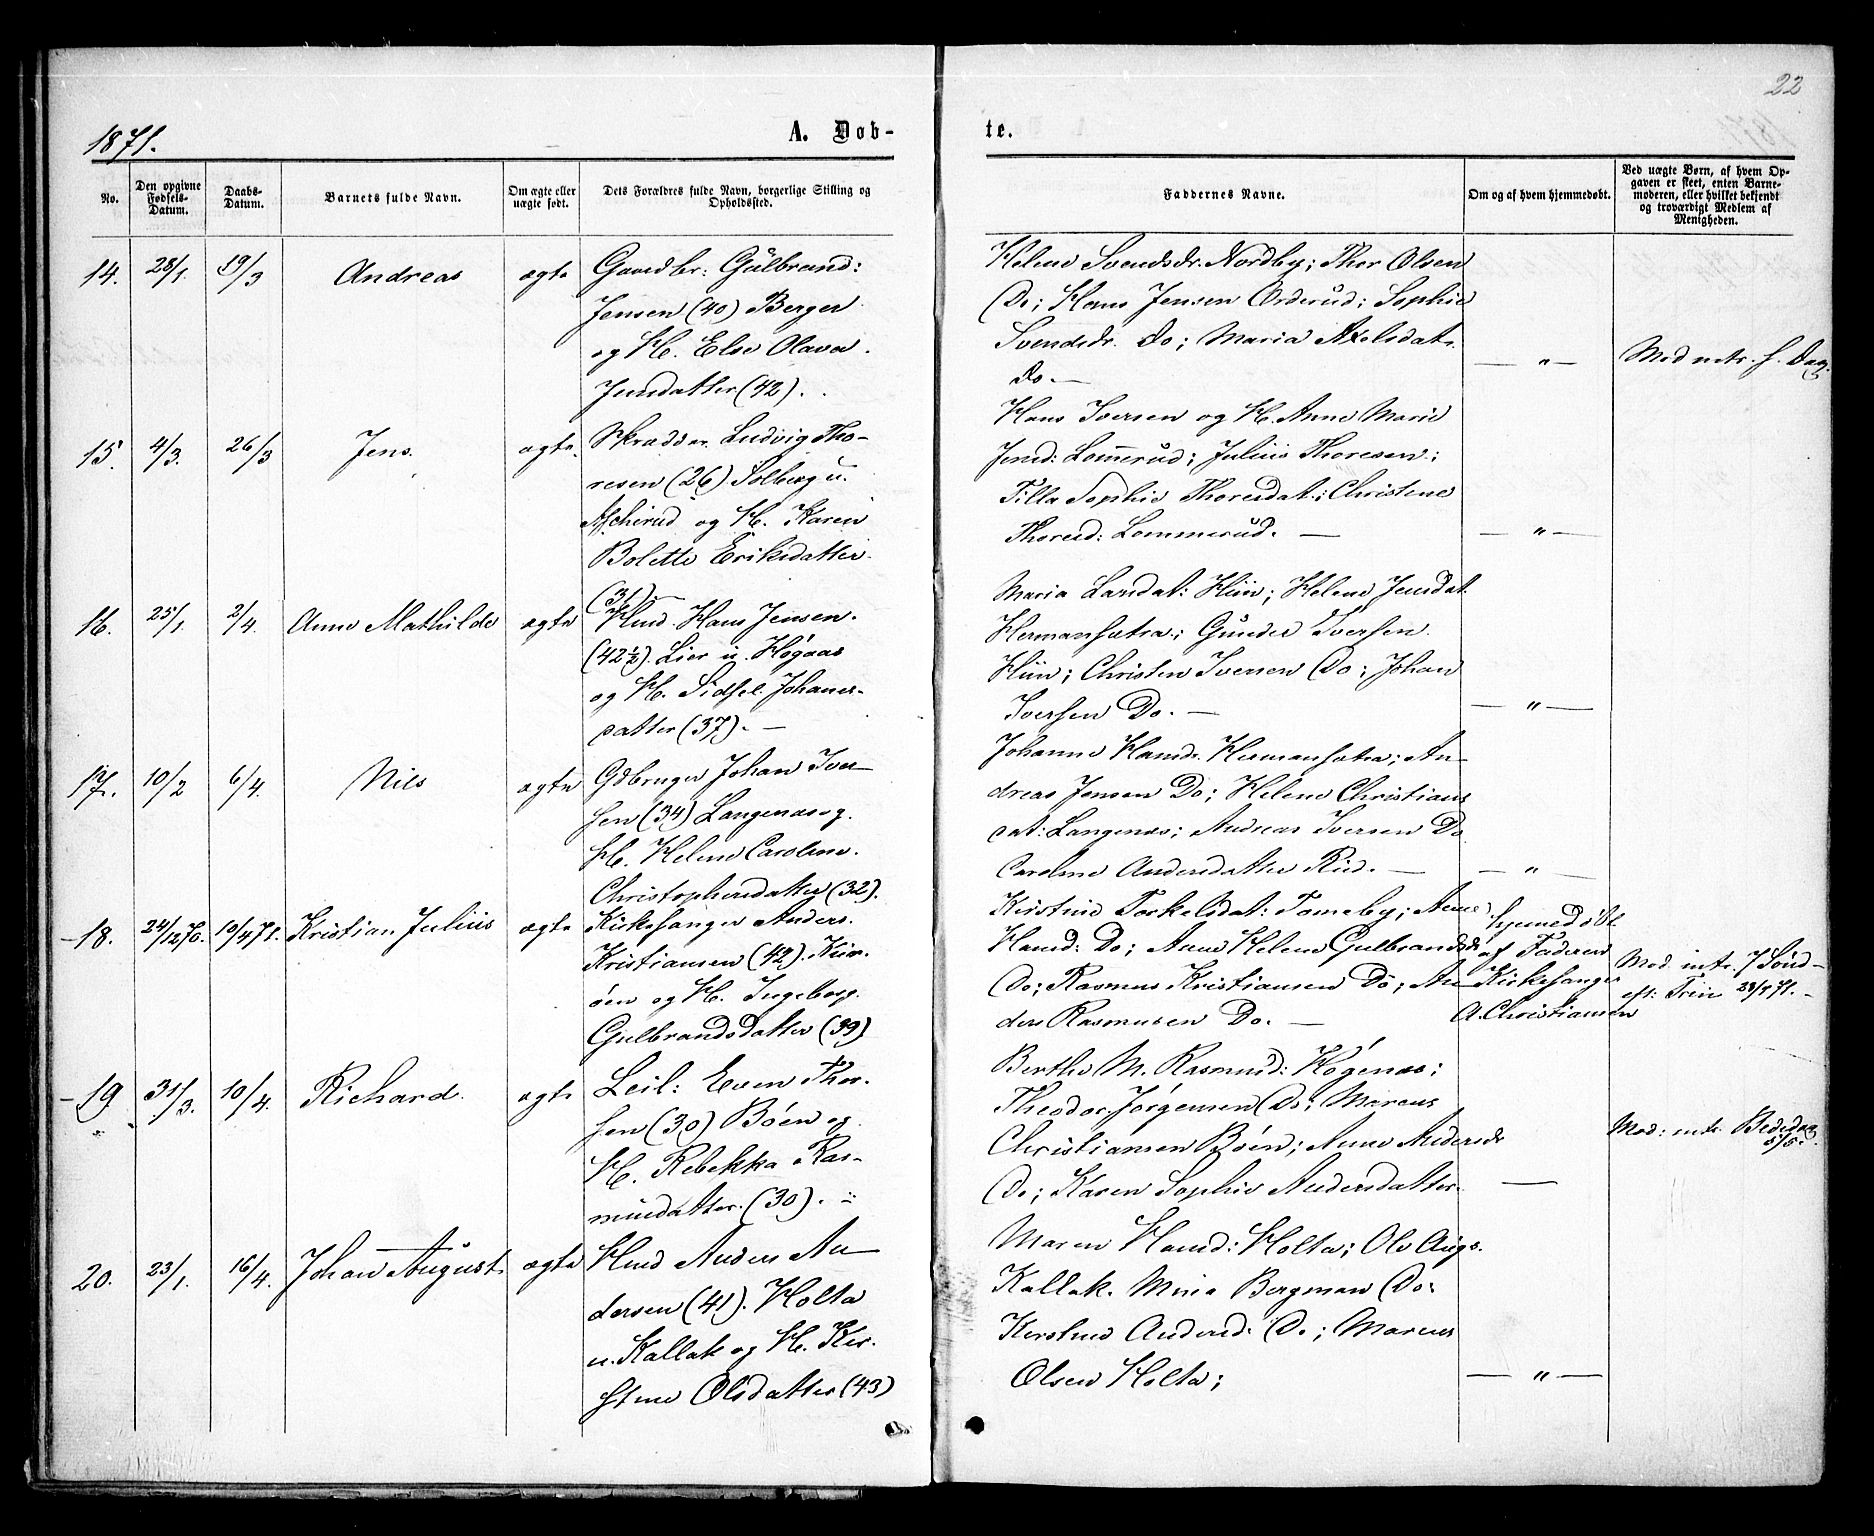 22
1871.
A. Døb-
te.
No.
Den opgivne Fødsels-Datum.
Daabs-Datum.
Barnets fulde Navn.
Om ægte eller uægte født.
Dets Forældres fulde Navn, borgerlige Stilling og Opholdssted.
Faddernes Navne.
Om og af hvem hjemmedøbt.
Ved uægte Børn, af hvem Op-
gaven er skeet, enten Barne-
moderen, eller hvilket bekjendt
og troværdigt Medlem af
Menigheden.
14. 28/1. 19/3 Andreas ægte Gaardbr: Gulbrand:
Jensen (40) Berger
og H. Else Olava.
Jensdatter (42).
Helene Svendsdr. Nordby; Thor Olsen
Do; Hans Jensen Orderud; Sophie
Svendsdr. Do; Maria Axelsdat.
Do. —
— " —
Mod. intr. s. Dag.
15. 4/3. 26/3 Jens. ægte. Skrædder Ludvig Tho-
resen (26) Solberg u.
Askerud og H. Karen
Bolette Eriksdatter
(31). —
Hans Iversen og H. Anne Marie
Jensd: Lommerud; Julius Thoresen;
Tilla Sophie Thoresdat; Christine
Thoresd: Lommerud. —
— " —
16. 25/1. 2/4. Anne Mathilde ægte Hmd. Hans Jensen.
(42½). Lier u. Høgaas
og H. Sidsel Johanes-
datter (37). —
Maria Larsdat: Hiin; Helene Jensdat.
Hermansætra; Gunder Iversen
Hiin; Christen Iversen Do; Johan
Iversen Do. —
— " —
17. 10/2 6/4. Nils ægte Gdbruger Johan Iver-
sen (34) Langenæs og
H. Helene Caroline.
Christophersdatter (32).
Johanne Hansd. Hermansætra; An-
dreas Jensen Do; Helene Christians
dat: Langenæs; Andreas Iversen Do
Caroline Andersdatter Rud. —
— " —
- 18. 24/12 70. 10/4 71. Kristian Julius ægte Kirkesanger Anders.
Kristiansen (42).
øen og H. Ingeborg.
Gulbrandsdatter (39)
Kirstine Torkelsdat: Tomeby; Anne
Hansd: Do; Anne Helene Gulbrandsdr
Do; Rasmus Kristiansen Do; An-
ders Rasmusen Do. —
hjemmedøbt
af Faderen
Kirkesanger
A. Christiansen
Mod. intr. 7 Sønd-
eft: Trin 23/7 71. -
- 19 31/3. 10/4. Richard. ægte Leil: Even Thor-
sen (30) Bøen og
H. Rebekka Ras-
musdatter. (30).
Berthe M. Rasmusd: Høgenæs;
Theodor Jørgensen Do; Marcus
Christiansen Bøen; Anne Andersdr
Do; Karen Sophie Andersdatter.
—
Mod: intr. Bededag
5/5.
20. 23/1. 16/4. Johan August ægte Hmd Anders An-
dersen (41). Holta
u. Kallak og H. Kir-
stine Olsdatter (43)
Maren Hansd: Holta; Ole Augs.
Kallak. Mina Bergman Do:
Kirstine Andersd: Do; Marcus
Olsen Holta;
— " —